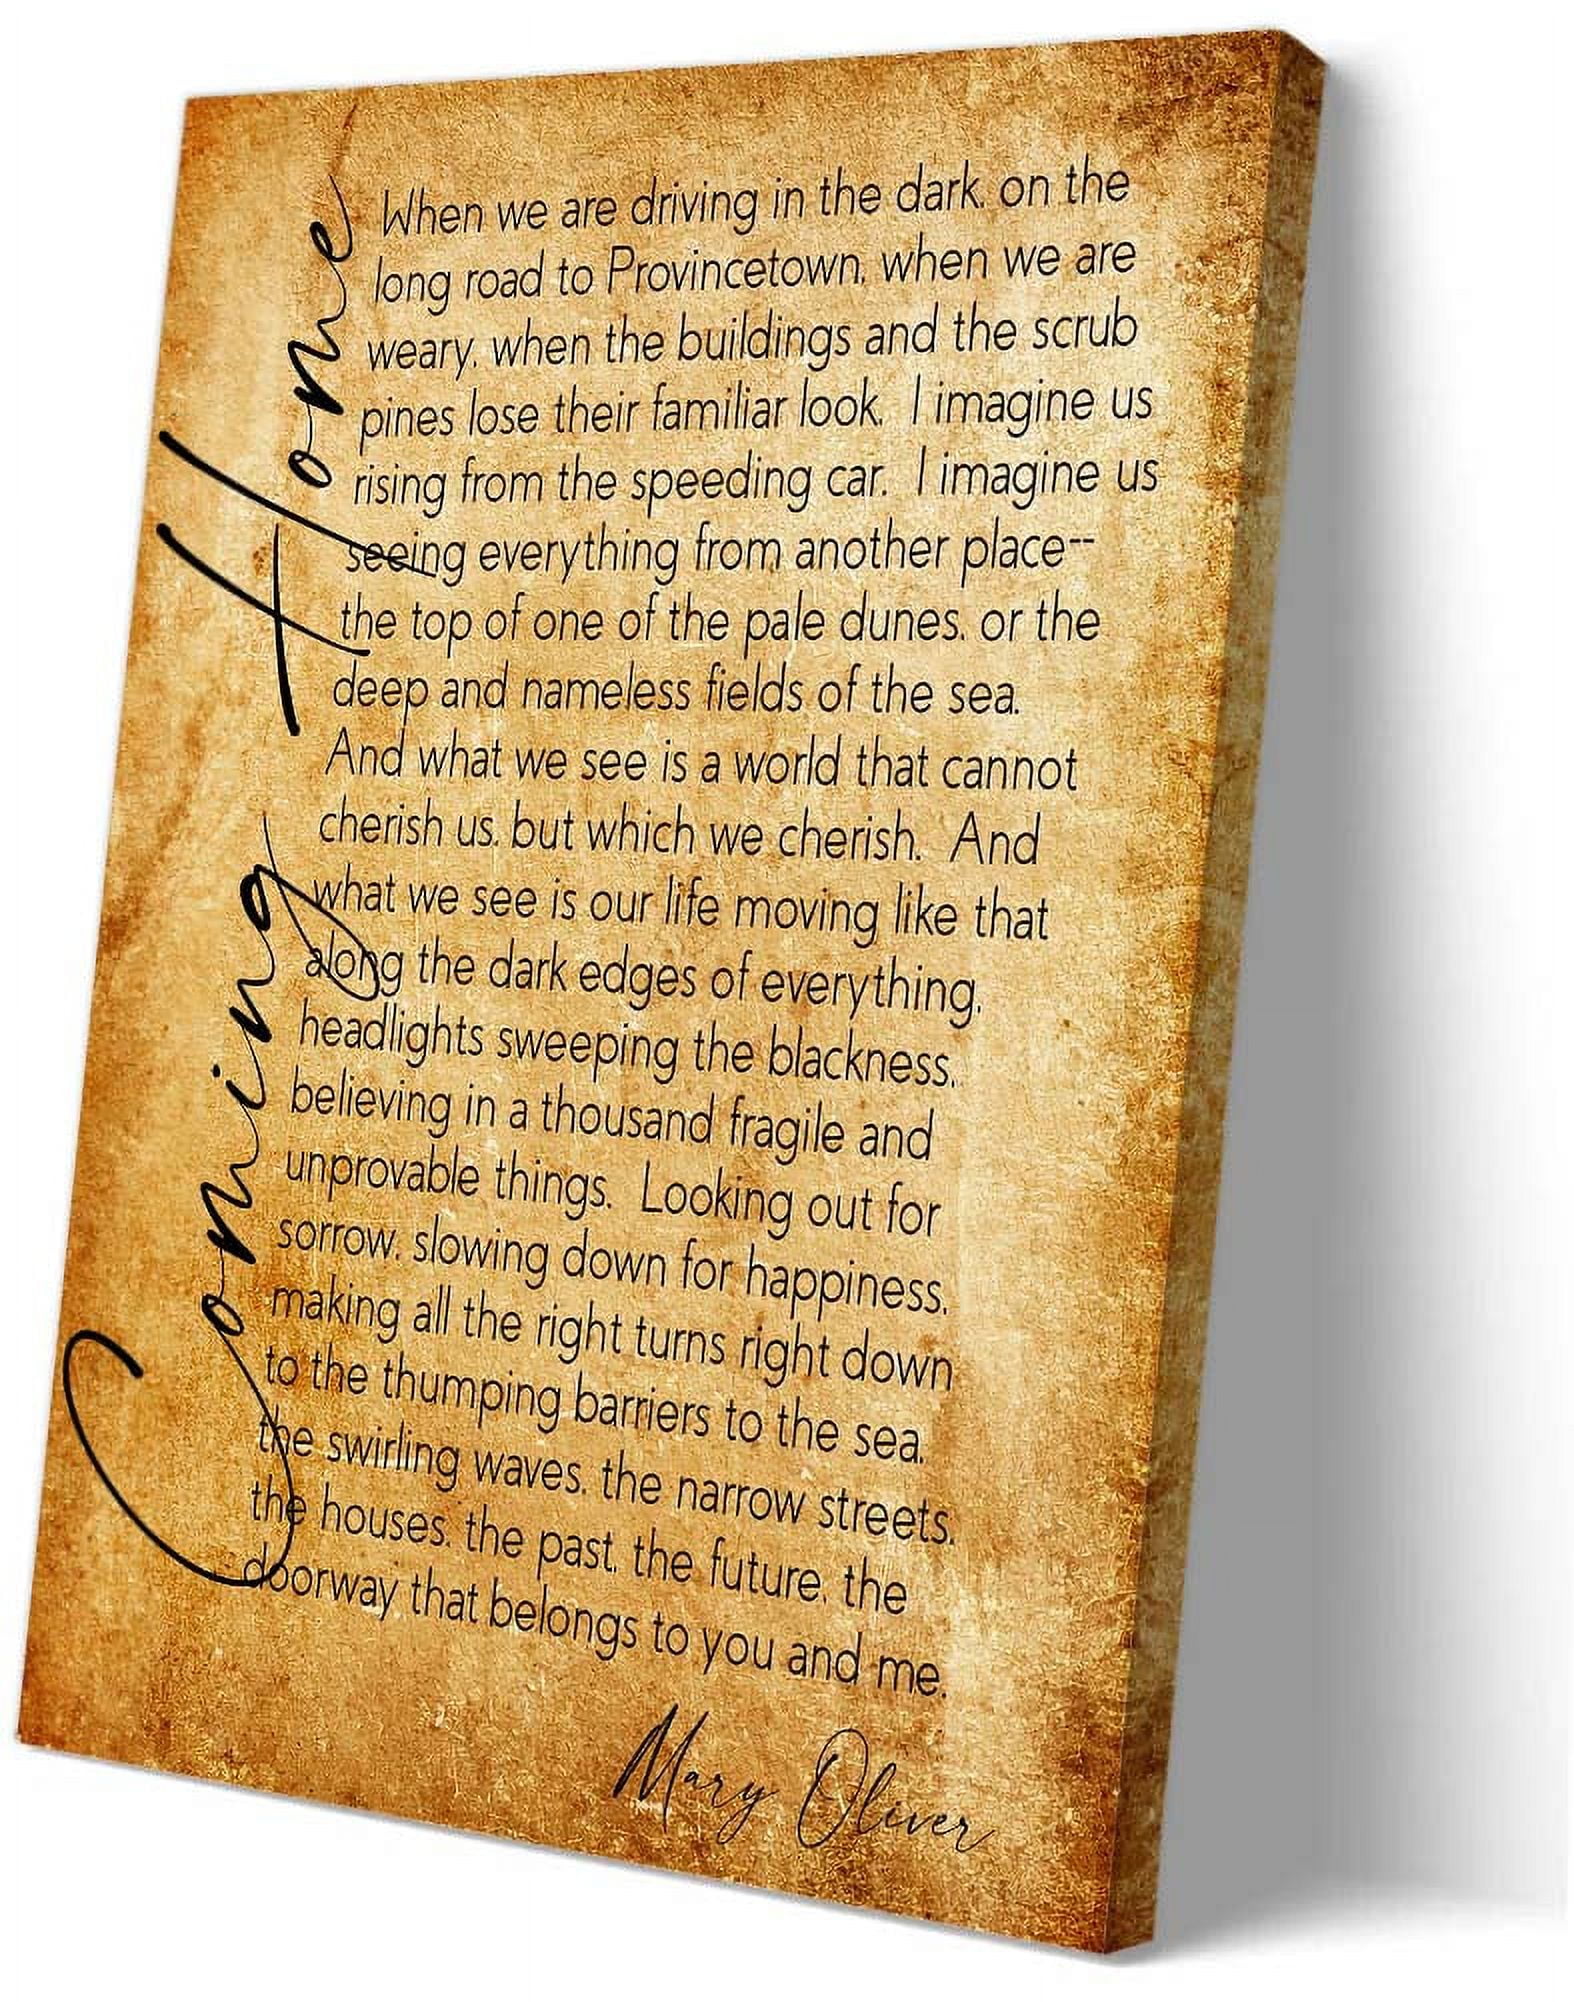 Coming Home
When we are driving in the dark, on the
long road to Provincetown, when we are
weary, when the buildings and the scrub
pines lose their familiar look, I imagine us
rising from the speeding car. I imagine us
seeing everything from another place--
the top of one of the pale dunes, or the
deep and nameless fields of the sea.
And what we see is a world that cannot
cherish us, but which we cherish. And
what we see is our life moving like that
along the dark edges of everything,
headlights sweeping the blackness,
believing in a thousand fragile and
unprovable things. Looking out for
sorrow, slowing down for happiness,
making all the right turns right down
to the thumping barriers to the sea,
the swirling waves, the narrow streets,
the houses, the past, the future, the
doorway that belongs to you and me.
Mary Oliver